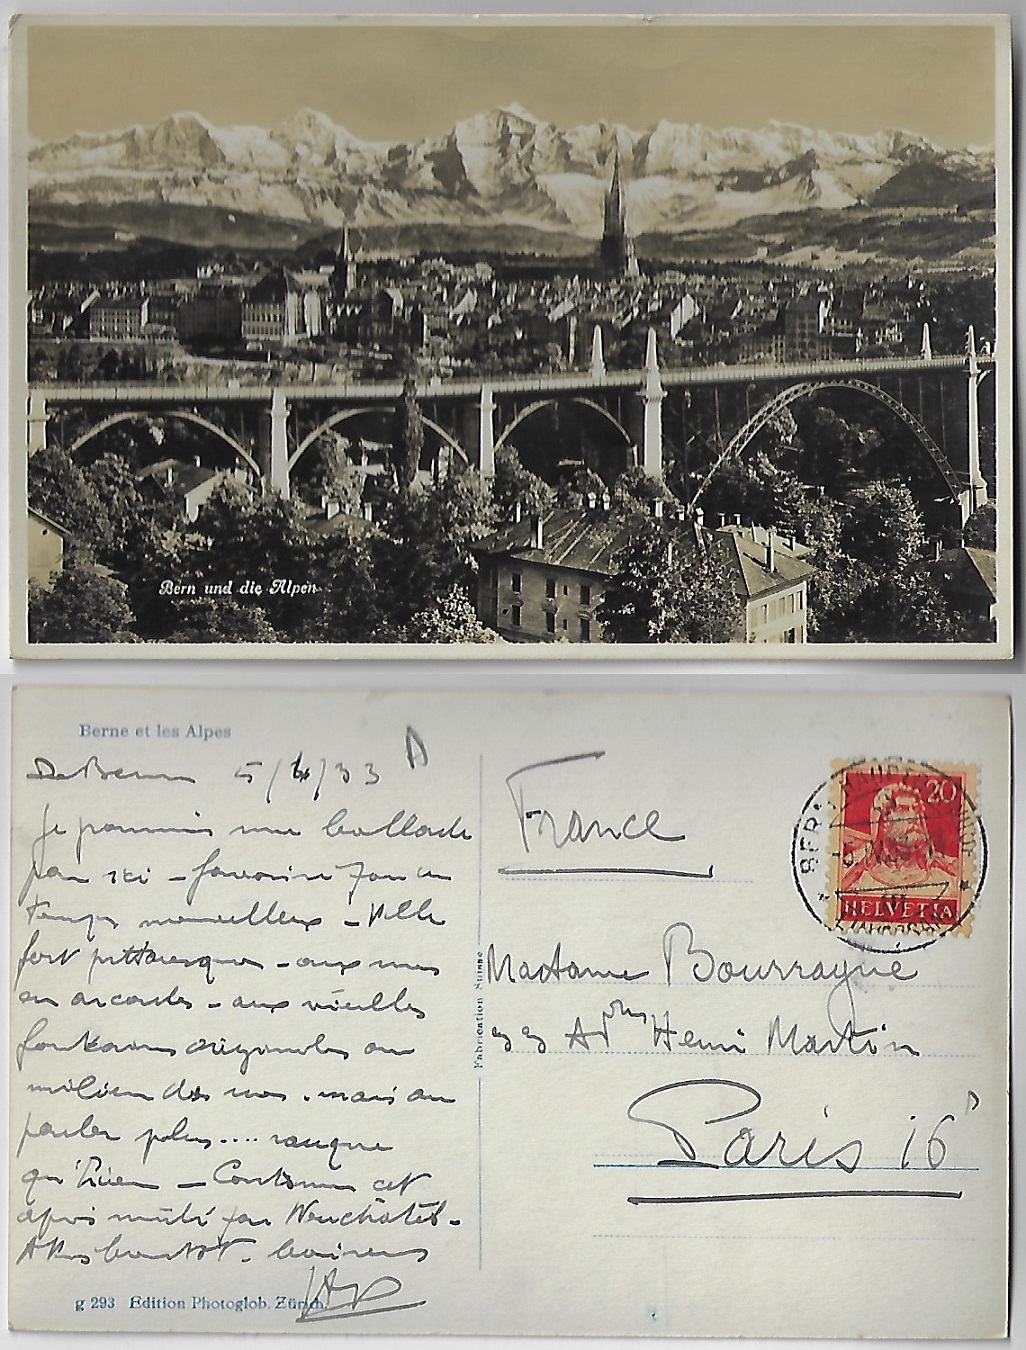 Bern und die Alpen
Berne et les Alpes
De Berne 5/4/33
Je poursuis une ballade
par ici - favorisé par un
temps merveilleux - Ville
fort pittoresque - aux rues
en arcades - aux vieilles
fontaines originales au
milieu des rues . mais au
parler plus.... rauque
qu'ici
cet
après midi par Neuchâtel -
A bientôt. baisers
g 293 Edition Photoglob. Zürich.
Fabrication Suisse
France
20
HELVETIA
BERN
Madame Bourrayne
99 Henri Martin
Paris 16